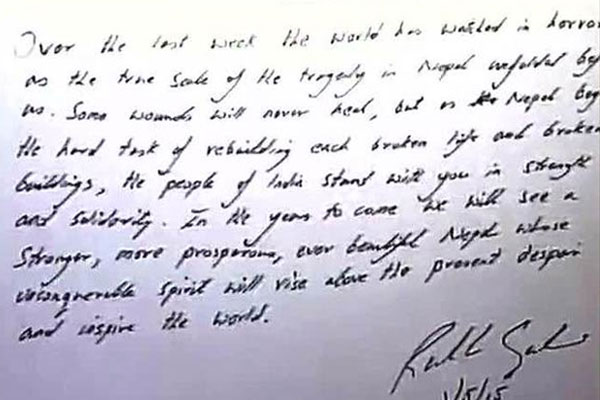 Over the last week the world has watched in horror
as the true scale of the tragedy in Nepal unfolded bef
us. Some wounds will never heal, but as Nepal beg
the hard task of rebuilding each broken life and broken
buildings, the people of India stand with you in strength
and solidarity. In the years to come we will see a
stronger, more prosperous, ever beautiful Nepal whose
unconquerable spirit will rise above the present despair
and inspire the world.
1/5/15